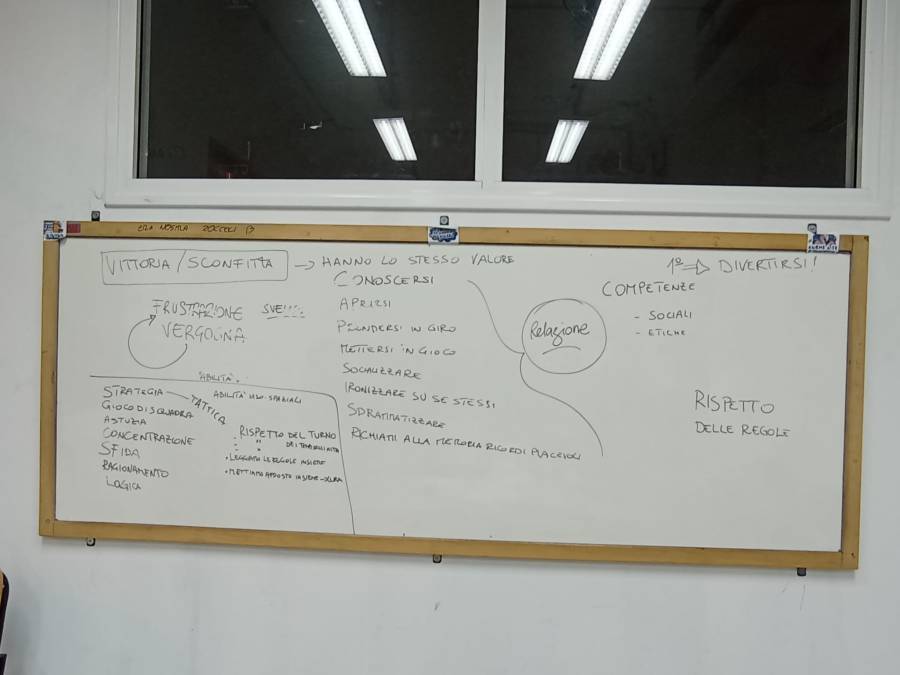 ERA NOSTRA
VITTORIA/SCONFITTA → HANNO LO STESSO VALORE
1º ⇒ DIVERTIRSI!
CONOSCERSI
APRIRSI
PRENDERSI IN GIRO
METTERSI IN GIOCO
SOCIALIZZARE
IRONIZZARE SU SE STESSI
SDRAMMATIZZARE
RICHIAMI ALLA MEMORIA RICORDI PIACEVOLI
FRUSTRAZIONE
VERGOGNA
Relazione
COMPETENZE
- SOCIALI
- ETICHE
RISPETTO
DELLE REGOLE
ABILITÀ
STRATEGIA — TATTICA
GIOCO DI SQUADRA
ASTUZIA
CONCENTRAZIONE
SFIDA
RAGIONAMENTO
LOGICA
ABILITÀ SPAZIALI
• RISPETTO DEL TURNO
" " DEI
• LEGGIAMO LE REGOLE INSIEME
• METTIAMO APPOSTO INSIEME